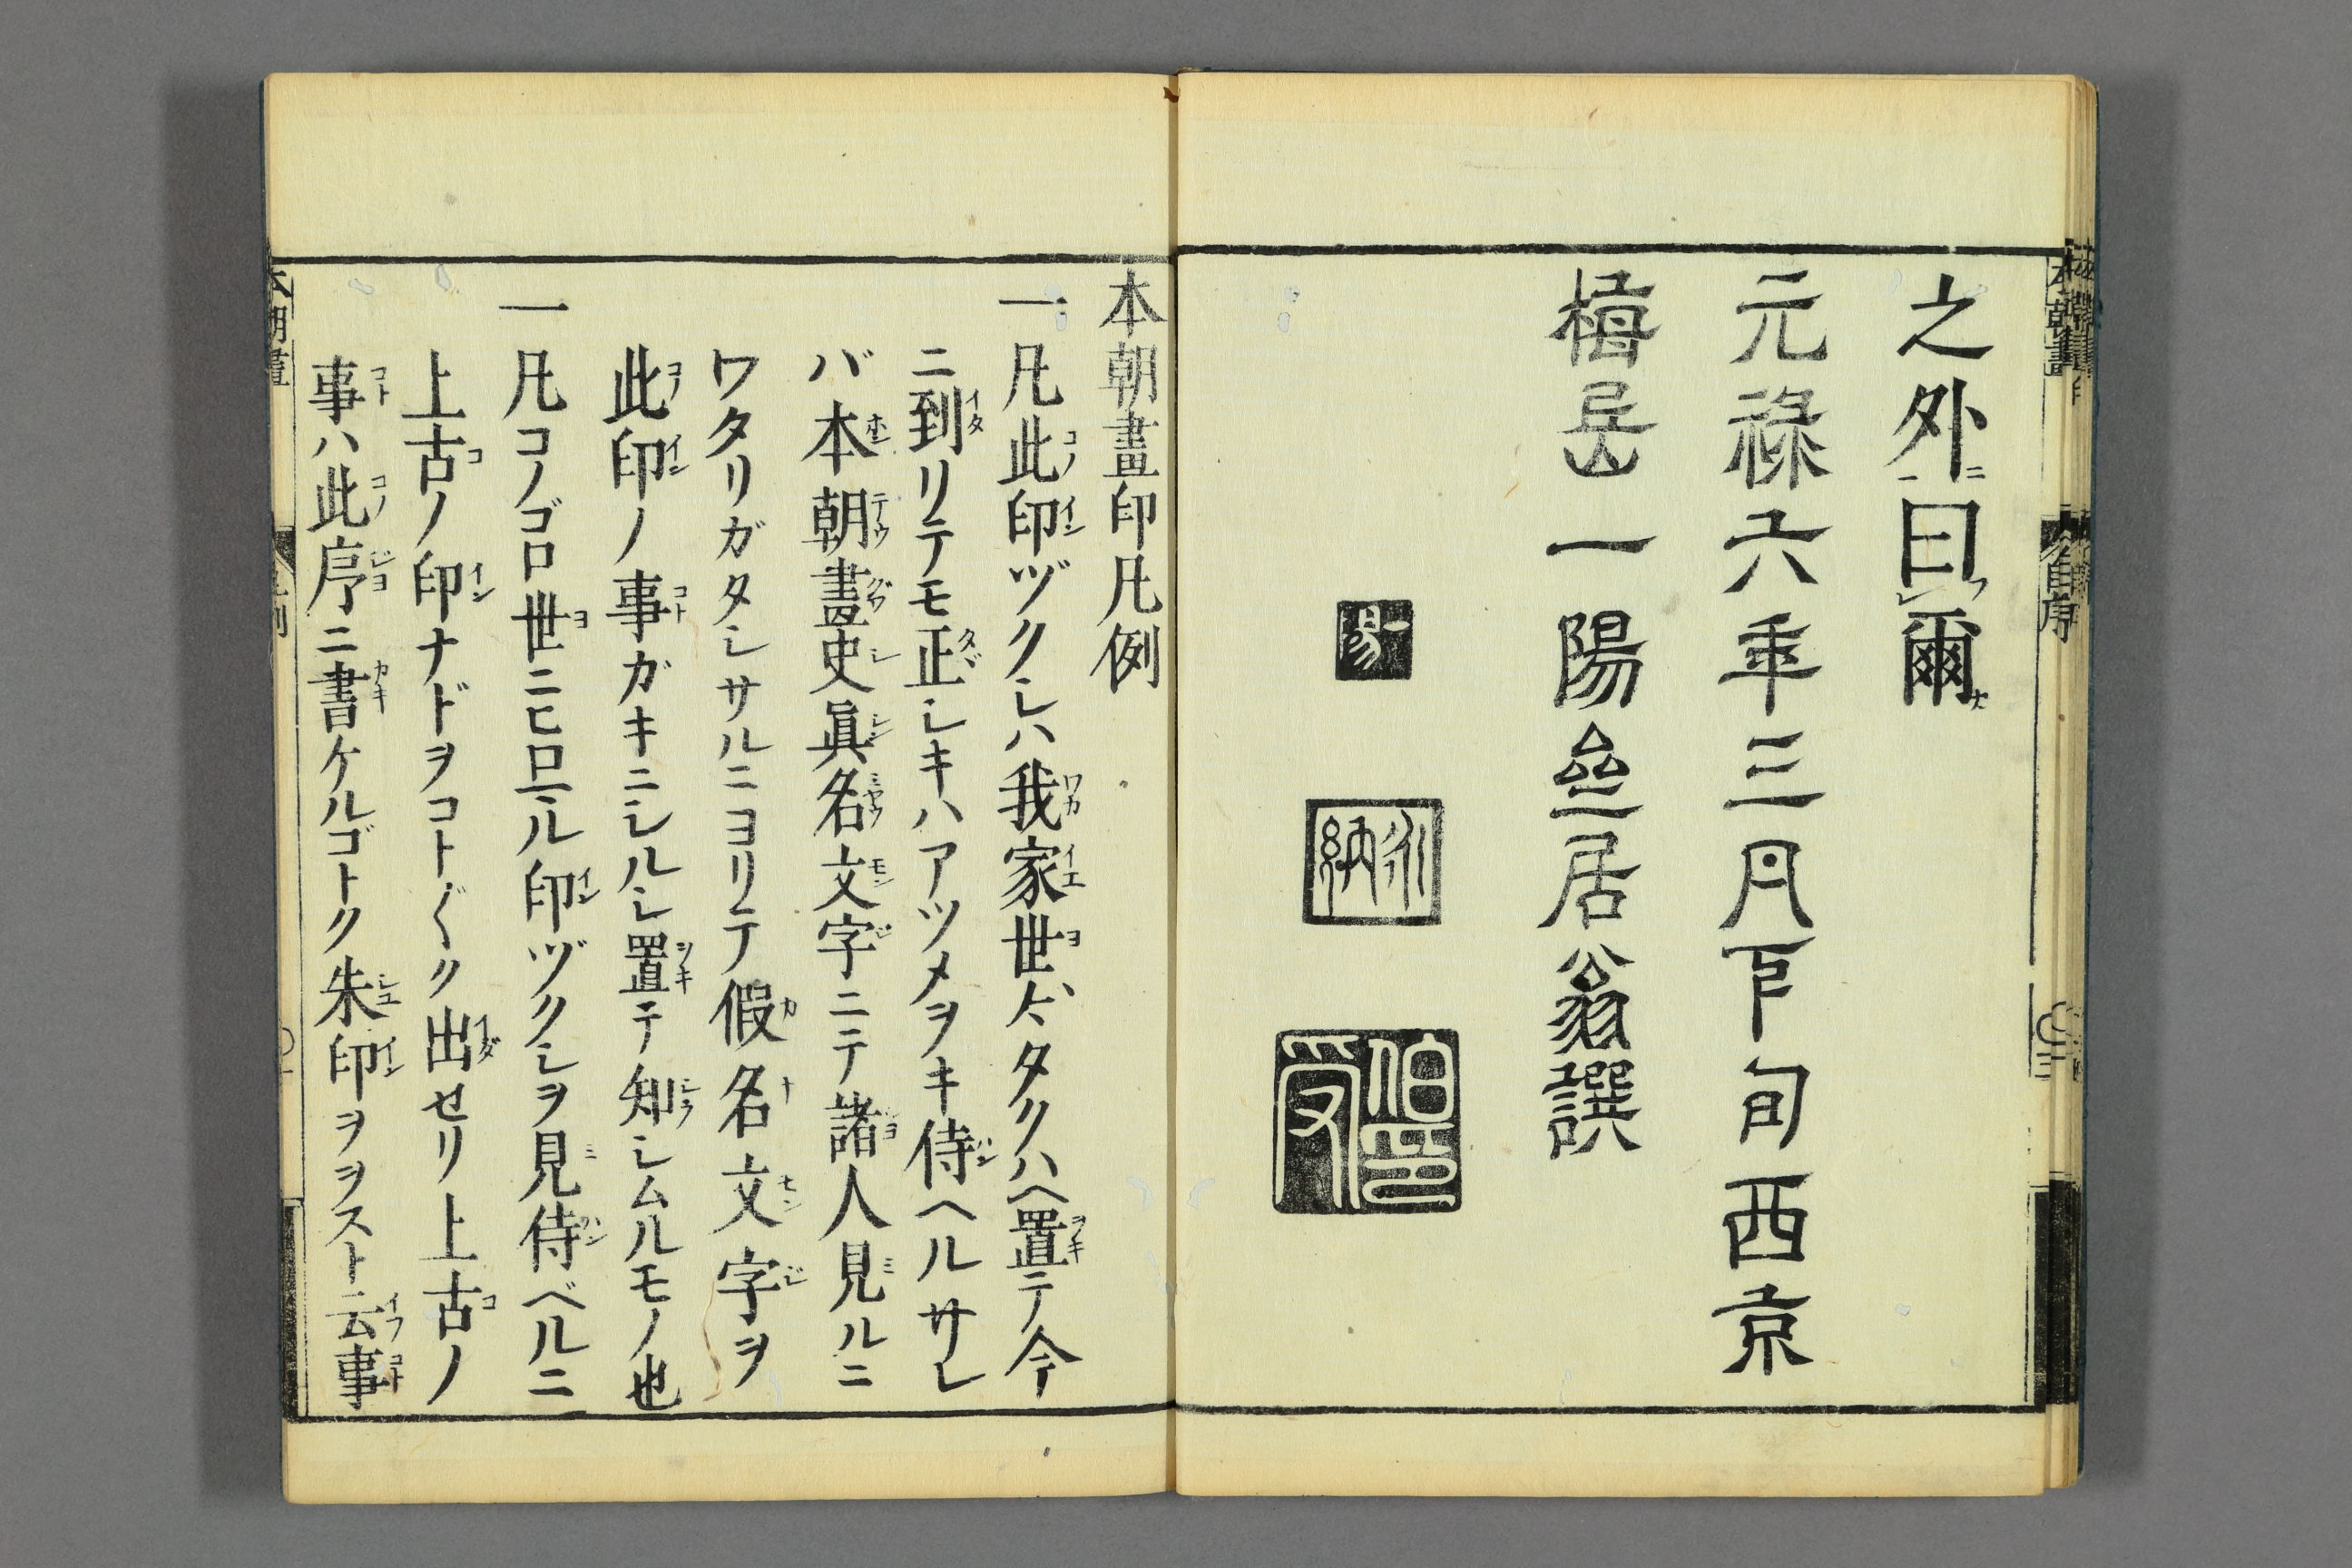 之外曰爾
元祿六年三月下旬西京
梅岳一陽叄居翁譔
陽
永納
伯受
本朝畫印凡例
一凡此印ヅクシハ我家世〻タクハヘ置テ今
ニ到リテモ正シキハアツメヲキ侍ヘルサレ
バ本朝畫史眞名文字ニテ諸人見ルニ
ワタリガタシサルニヨリテ假名文字ヲ
此印ノ事ガキニシルシ置テ知シムルモノ也
一凡コノゴロ世ニヒロマル印ヅクシヲ見侍ベルニ
上古ノ印ナドヲコト〲ク出セリ上古ノ
事ハ此序ニ書ケルゴトク朱印ヲヲスト云事